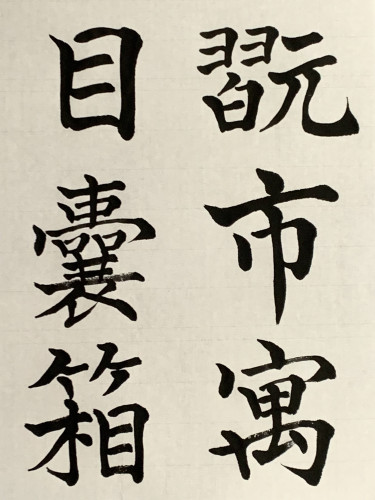 翫市寓
目囊箱